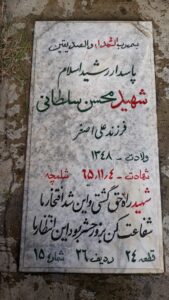 بسم رب الشهداء والصدیقین
پاسدار رشید اسلام
شهید محسن سلطانی
فرزند علی اصغر
ولادت - ۱۳۴۸
شهادت - ۶۵/۱۱/۰۴ شلمچه
شهید راه حق گشتی و این شد افتخار ما
شفاعت کن بروز حشر بود این انتظار ما
قطعه ۲۴ ردیف ۲۶ شماره ۱۵